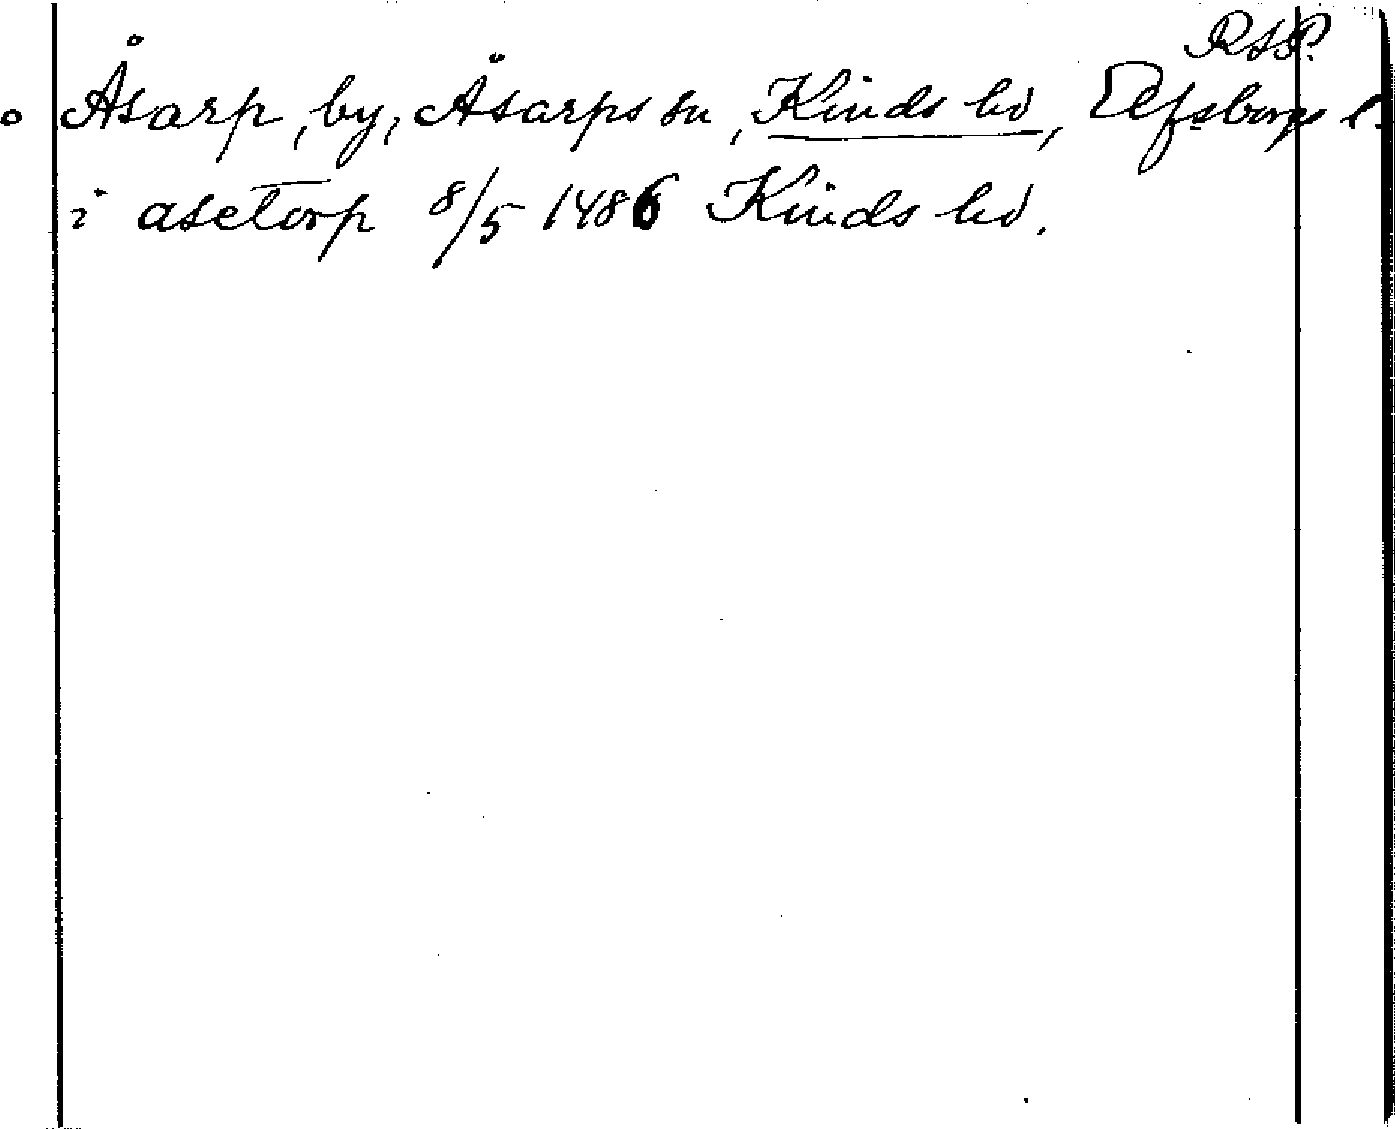 RAP.
Åsarp, by, Åsarps sn, Kinds hd, Elfsborgs l.
i asetorp 8/5 1486 Kinds hd.